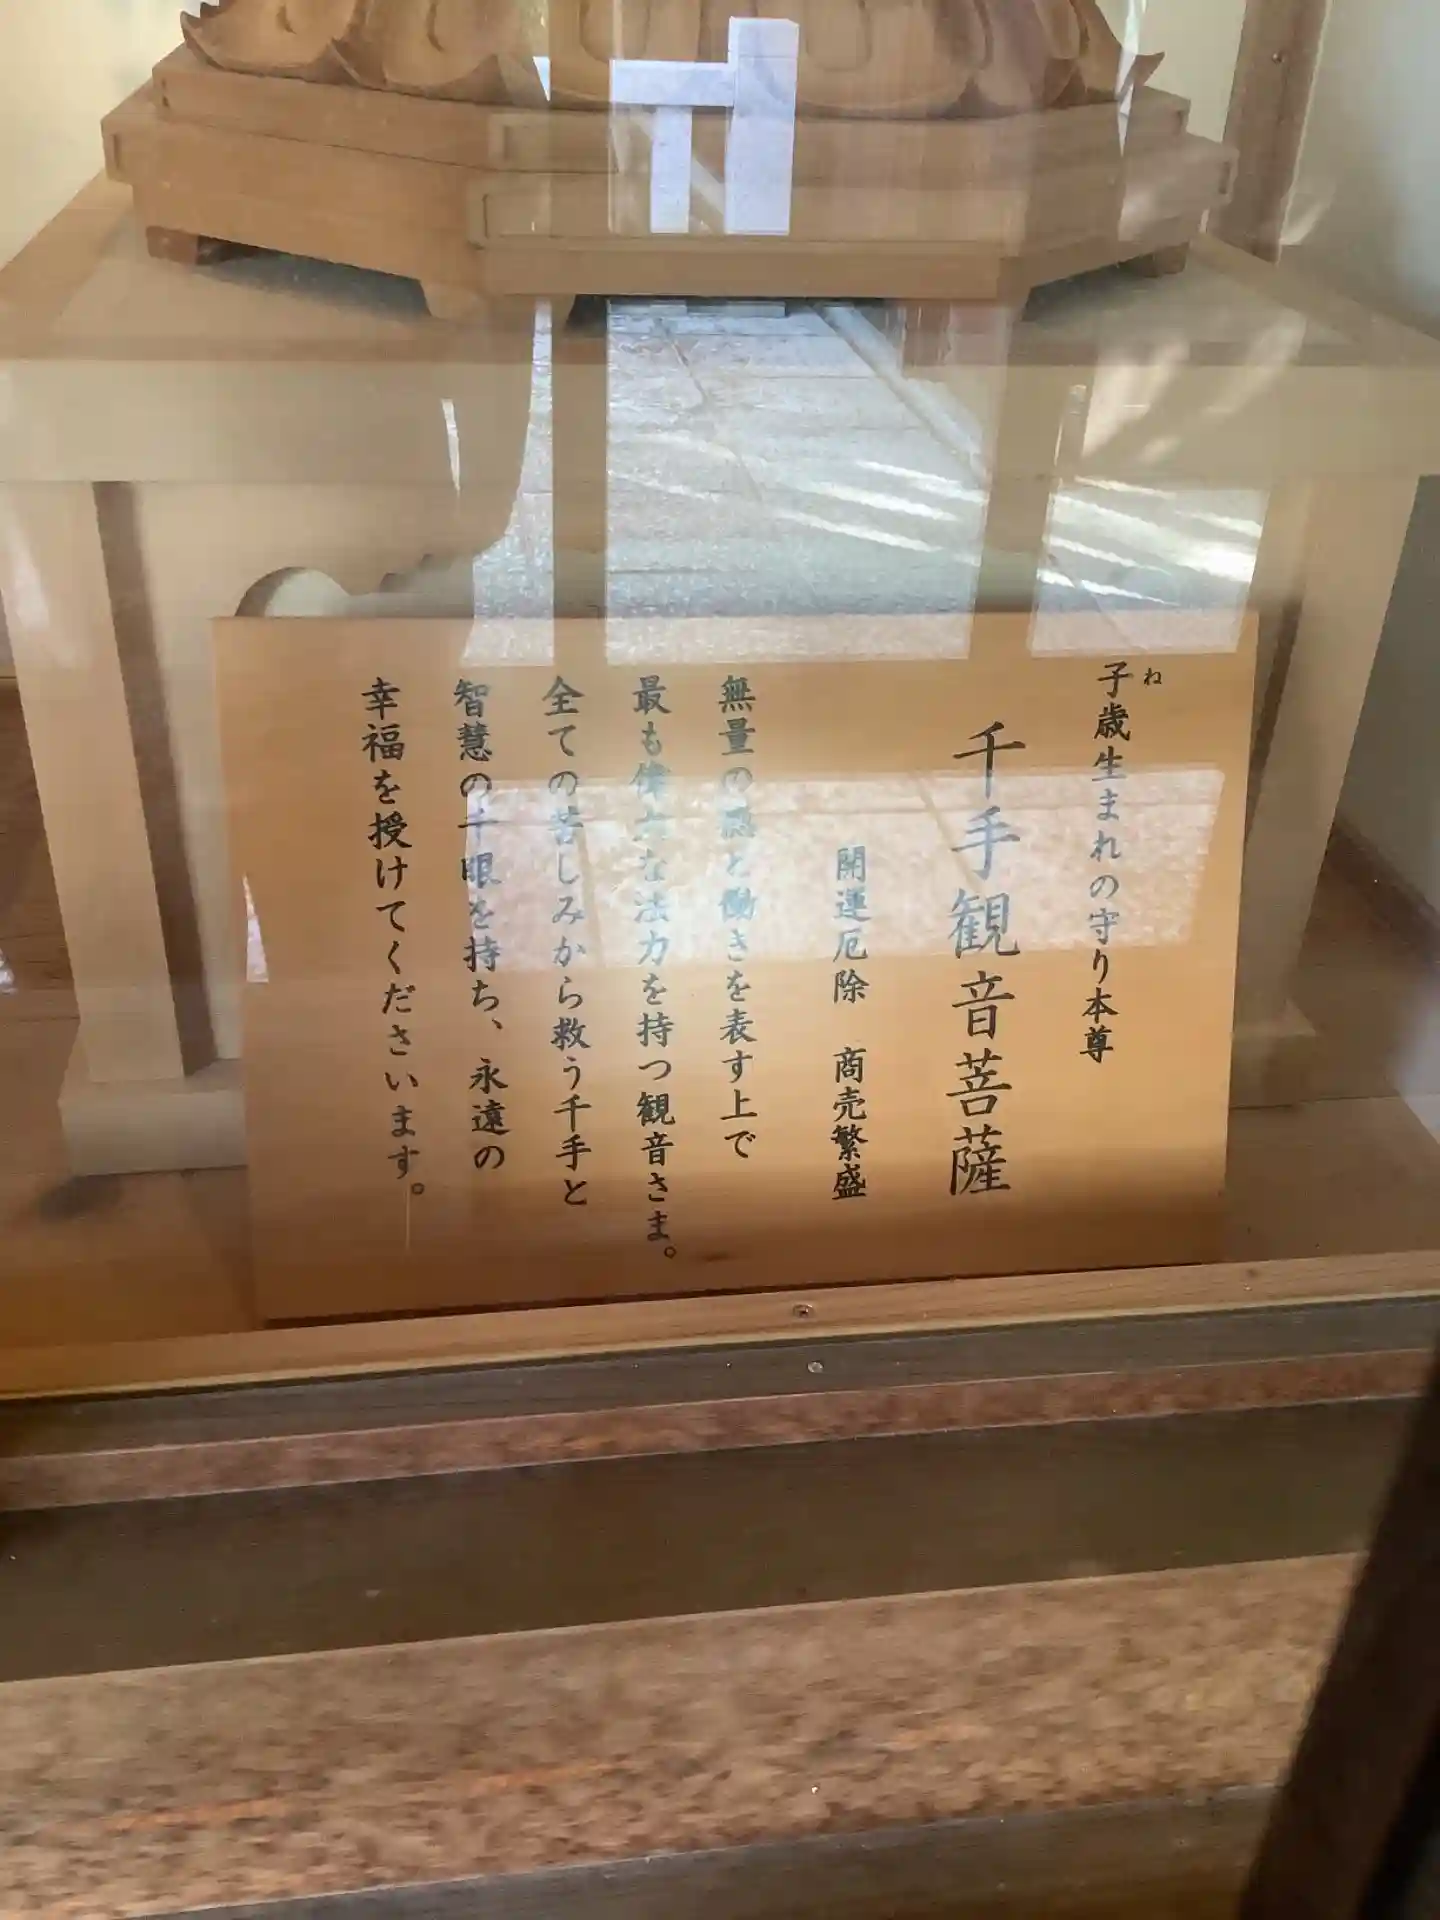 子歳生まれの守り本尊
ね
千手観音菩薩
開運厄除　商売繁盛
無量の慈と働きを表す上で
最も偉大な法力を持つ観音さま。
全ての苦しみから救う千手と
智慧の千眼を持ち、永遠の
幸福を授けてくださいます。